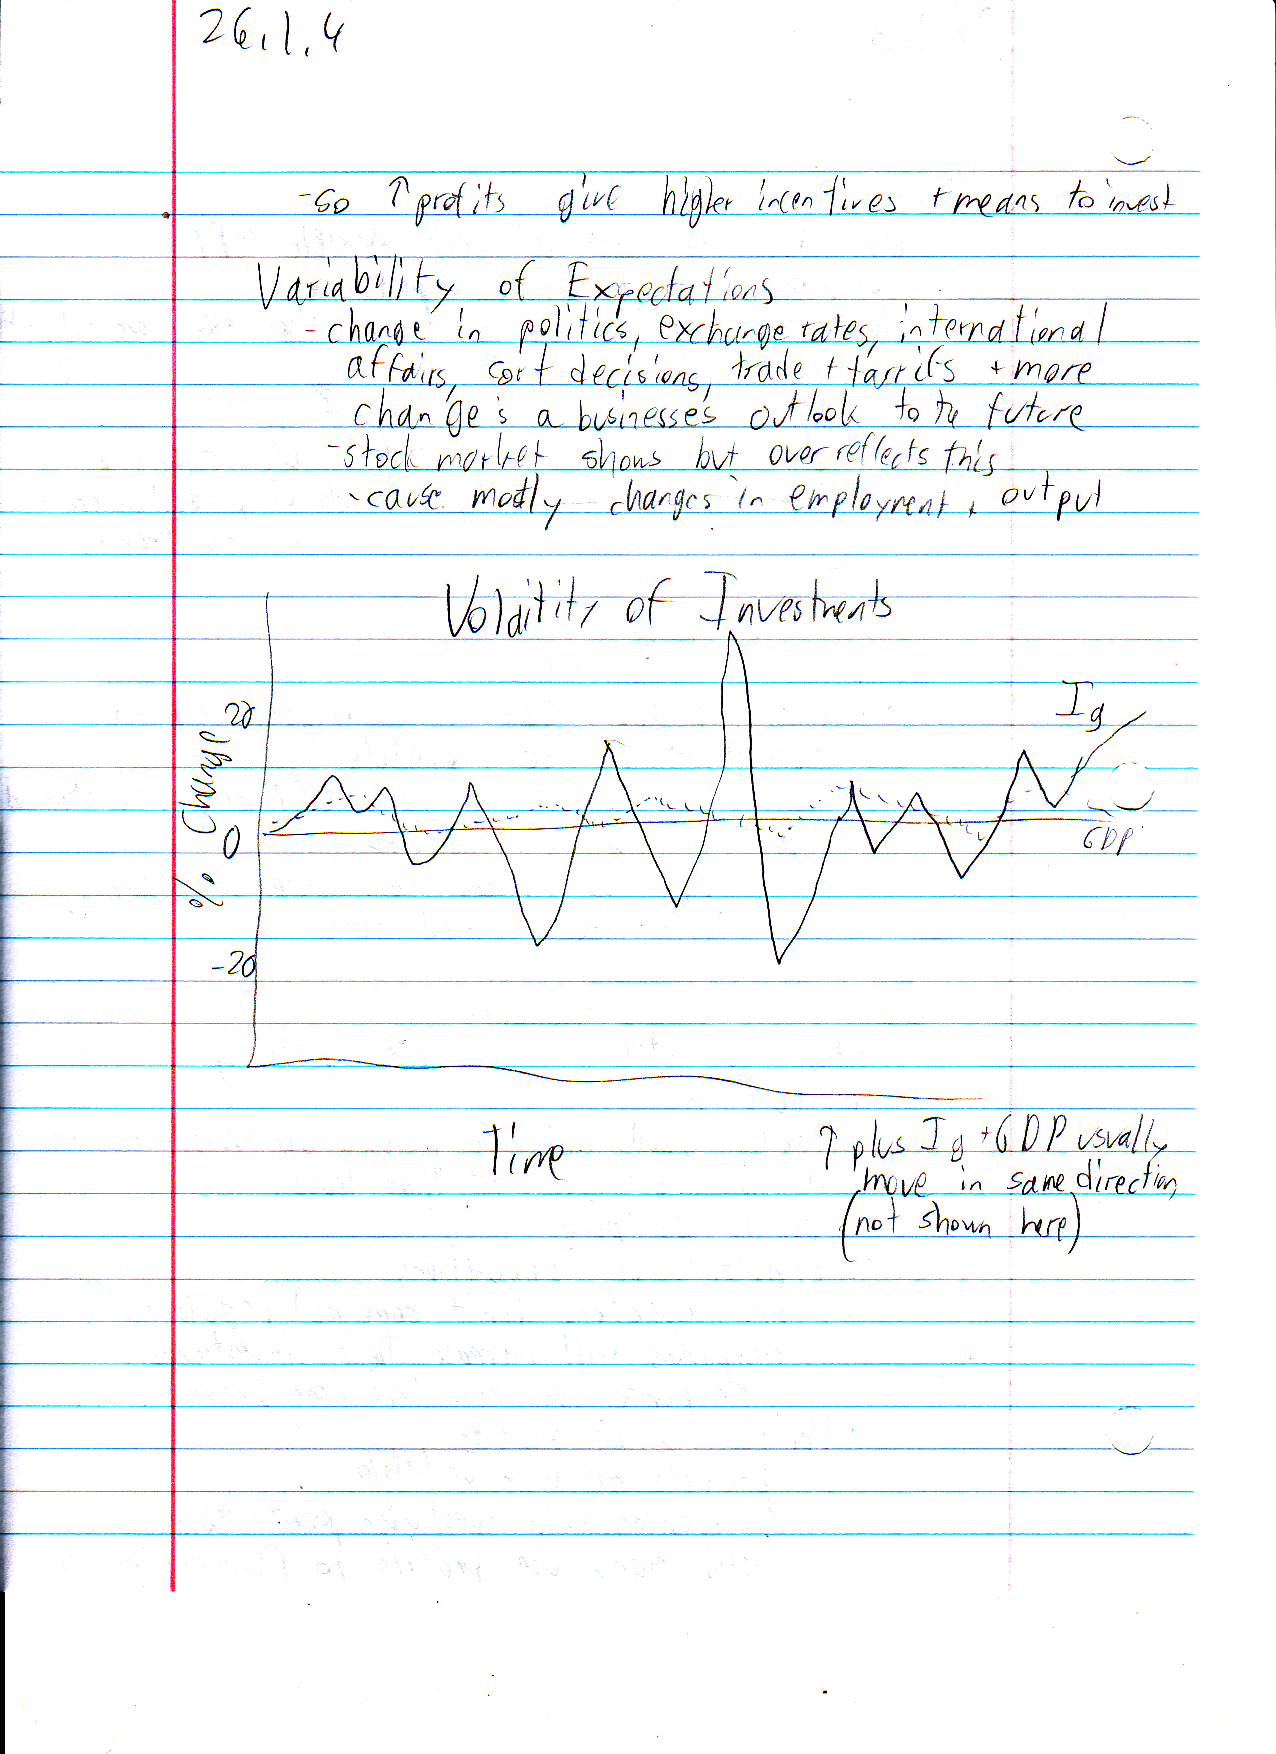 26.1.4
-so ↑ profits give higher incentives + means to invest
Variability of Expectations
- change in politics, exchange rates, international
affairs, cort decisions, trade + tarrifs + more
change's a businesses outlook to the future
- stock market shows but over reflects this
- cause mostly changes in employment + output
Volatitity of Investments
Ig
20
% Change
0
GDP
-20
Time
↑ plus Ig + GDP usually
move in same direction
(not shown here)